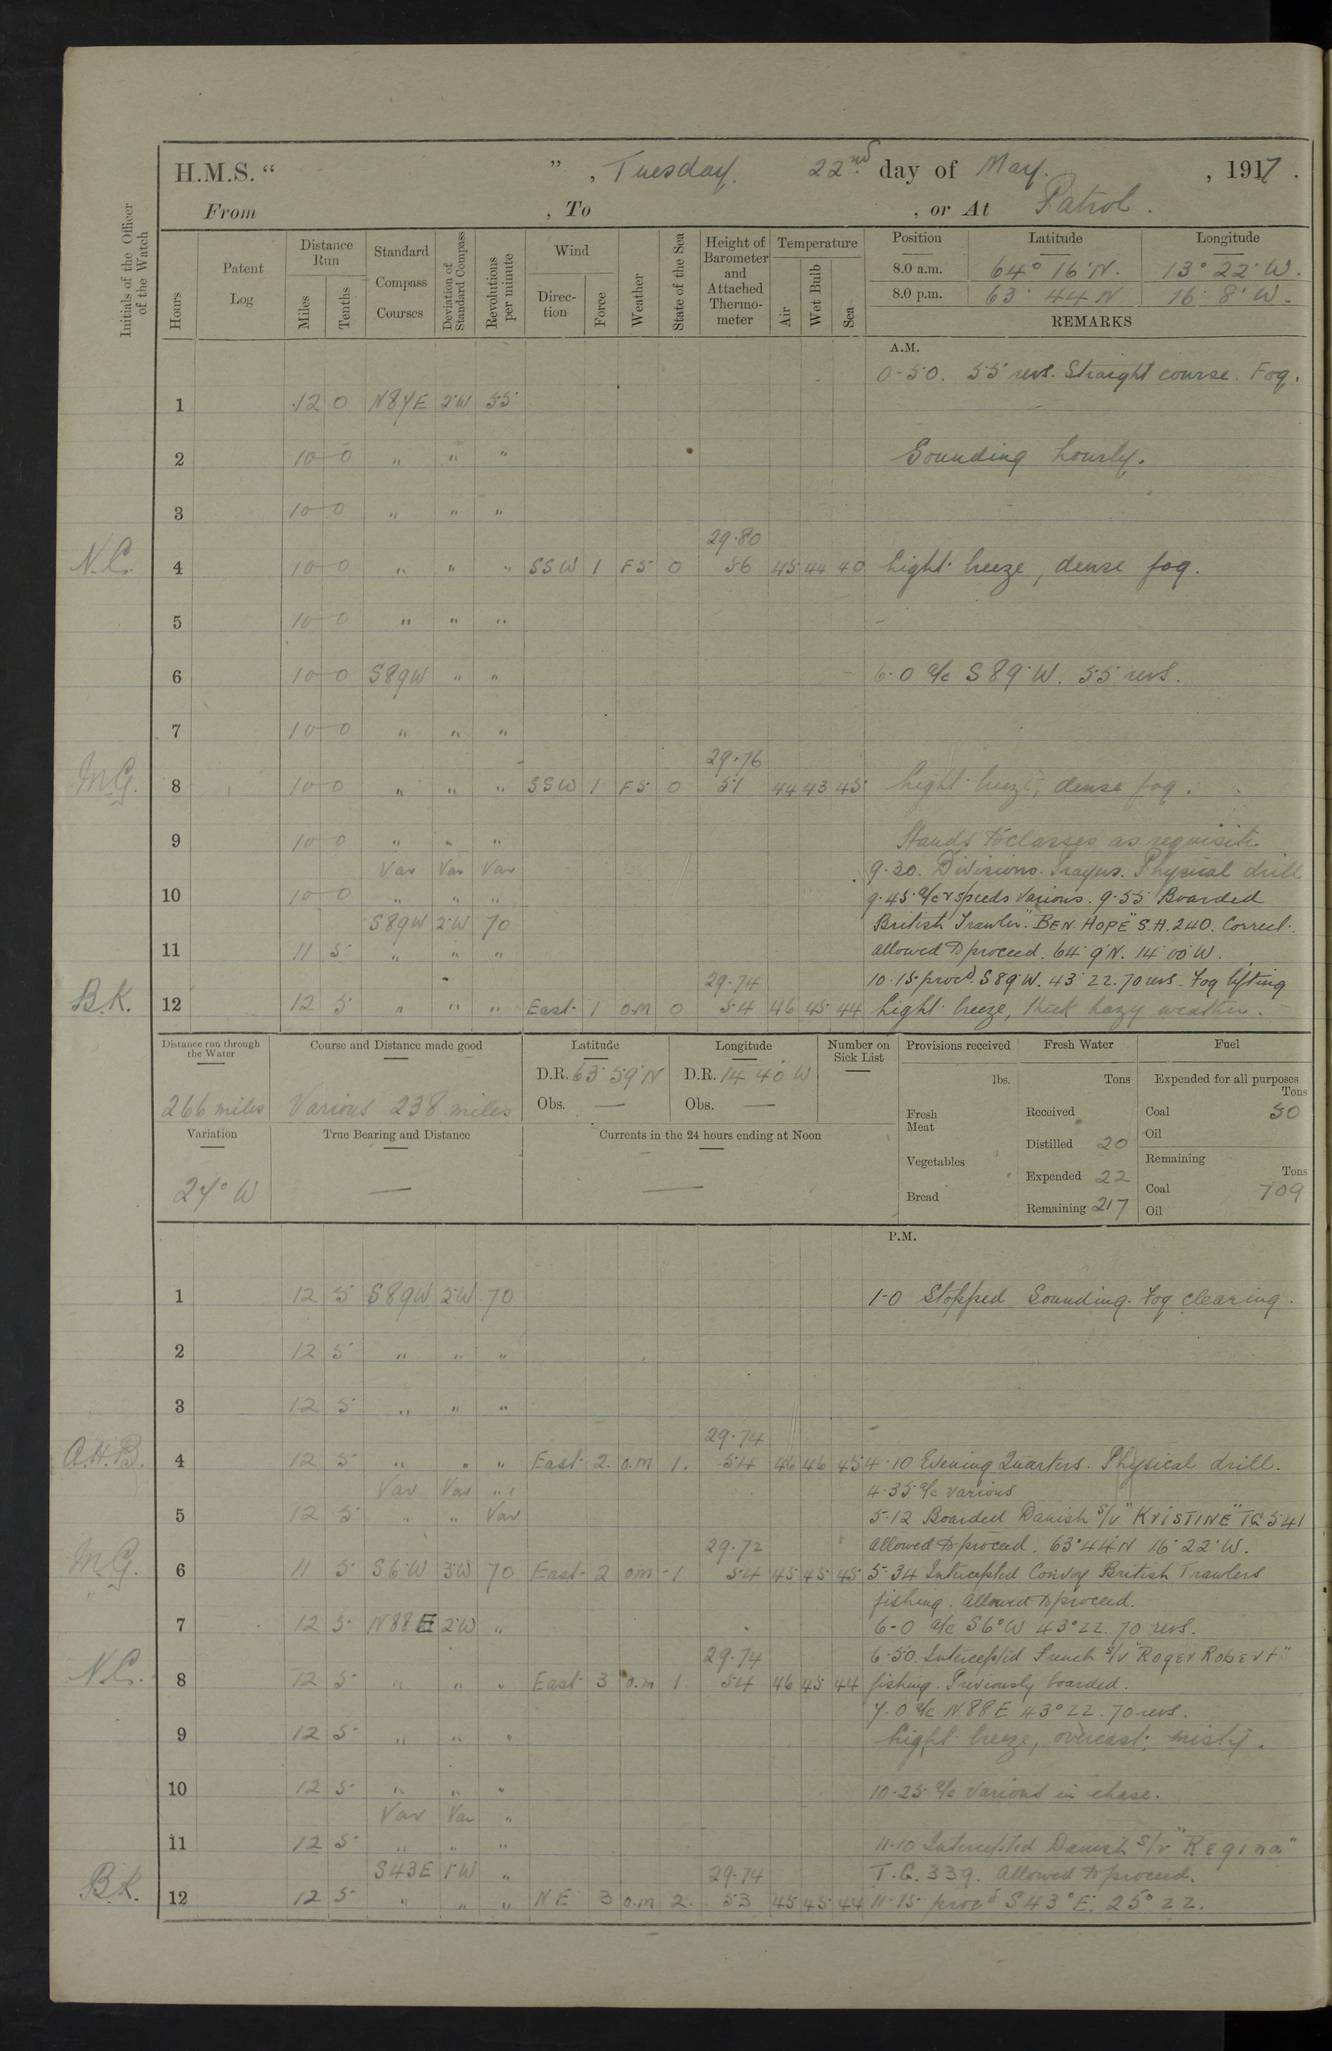 H.M.S. “ ” , Tuesday. 22nd day of May. , 1917 .
From , To , or At Patrol .
Initials of the Officer of the Watch
Hours
Patent Log
Distance Run
Miles
Tenths
Standard Compass Courses
Deviation of Standard Compass
Revolutions per minute
Wind
Direction
Force
Weather
State of the Sea
Height of Barometer and Attached Thermometer
Temperature
Air
Wet Bulb
Sea
Position Latitude Longitude
8.0 a.m. 64° 16' N. 13° 22' W.
8.0 p.m. 63° 44 N 16° 8' W.
REMARKS
A.M.
0-50. 55 revs. Straight course. Fog.
1 12 0 N84E 2W 55
2 10 0 " " " Sounding hourly.
3 10 0 " " "
29.80
N.C. 4 10 0 " " " SSW 1 F5 0 56 45 44 40 Light breeze, dense fog.
5 10 0 " " "
6 10 0 S89W " " 6.0 a/c S89°W. 55 revs.
7 10 0 " " "
29.76
M.G. 8 10 0 " " " SSW 1 F5 0 51 44 43 45 Light breeze, dense fog.
9 10 0 " " " Hands to classes as requisite
Var Var Var 9.30. Divisions. Prayers. Physical drill
10 10 0 " " " 9.45. a/c & speeds various. 9.55 Boarded
S89W 2W 70 British Trawler "BEN HOPE" S.H.240. Correct.
11 11 5 " " " allowed to proceed. 64° 9'N. 14° 00' W.
29.74 10.15 procd. S89°W. 43° 22. 70 revs. Fog lifting
B.K. 12 12 5 " " " East 1 o.m 0 54 46 45 44 Light breeze, thick hazy weather.
Distance run through the Water
266 miles
Course and Distance made good
Various 238 miles
Latitude
D.R. 63° 59' N
Obs. —
Longitude
D.R. 14 40 W
Obs. —
Number on Sick List
Variation
24° W
True Bearing and Distance
—
Currents in the 24 hours ending at Noon
—
Provisions received
lbs.
Fresh Meat
Vegetables
Bread
Fresh Water
Tons
Received
Distilled 20
Expended 22
Remaining 217
Fuel
Expended for all purposes
Tons
Coal 50
Oil
Remaining
Tons
Coal 709
Oil
P.M.
1 12 5 S89W 2W 70 1-0 Stopped Sounding. Fog clearing.
2 12 5 " " "
3 12 5 " " "
29.74
A.H.B. 4 12 5 " " " East 2 o.m 1. 54 46 46 45 4.10 Evening Quarters. Physical drill.
Var Var " 4.35 a/c various
5 12 5 " " Var 5-12 Boarded Danish S/V "KRISTINE" TG 541
29.72 allowed to proceed. 63° 44'N 16° 22' W.
M.G. 6 11 5 S6W 3W 70 East 2 om 1 54 45 45 45 5-34 Intercepted Convoy British Trawlers
fishing. Allowed to proceed.
7 12 5 N88E 2W " 6-0 a/c S6°W 43°22. 70 revs.
29.74 6.50. Intercepted French S/V "Roger Robert"
N.C. 8 12 5 " " " East 3 o.m 1 54 46 45 44 fishing. Previously boarded.
7.0 a/c N88E 43°22. 70 revs.
9 12 5 " " " Light breeze, overcast, misty.
10 12 5 " " " 10.25 a/c various in chase.
Var Var "
11 12 5 " " " 11-10 Intercepted Danish S/V "Regina"
S43E 1W " 29.74 T.G. 339. Allowed to proceed.
B.K. 12 12 5 " " " NE 3 o.m 2. 53 45 45 44 11-15 procd S43°E. 25° 22.